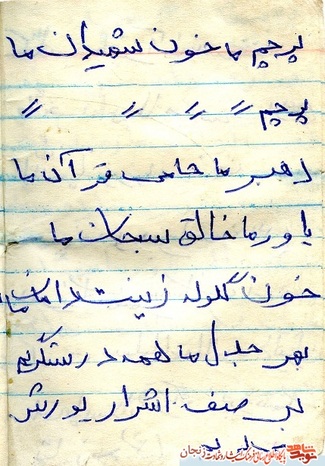 پرچم ما خون شهیدان ما
پرچم " " " "
رهبر ما حامی قرآن ما
یاور ما خالق سبحان ما
خون گلوله زینت دامان ما
بهر جدل ما همه در سنگریم
بر صف اشرار یورش
نوید شاهد
زنجان